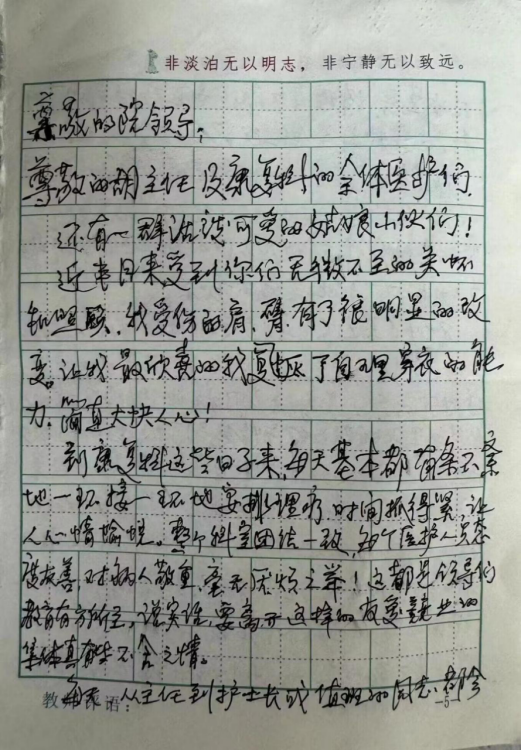 非淡泊无以明志，非宁静无以致远。
尊敬的院领导；
尊敬的胡主任及康复科的全体医护们，
还有一群活泼可爱的姑娘小伙们！
近半月来受到你们无微不至的关怀
和照顾，我受伤的肩，臂，有了很明显的改
变。让我最欣喜的我复了自理穿衣的能
力，简直大快人心！
到康复科这些日子来，每天基本都有条不紊
地一环接一环地安排理疗，时间抓得紧，让
人心情愉悦。整个科室团结一致，每个医护人员态
度友善，对病人敬重，毫无厌烦之举！这都是领导们
教育有方所至，说实话，要离开这样的友爱敬业的
集体真有些不舍之情。
教 语：从主任到护士长或值班的同志，都会
-5-